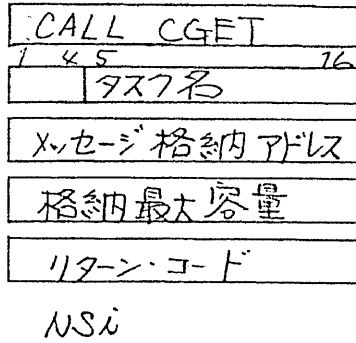 CALL CGET
1 4 5 16
タスク名
メッセージ格納アドレス
格納最大容量
リターン・コード
NSi